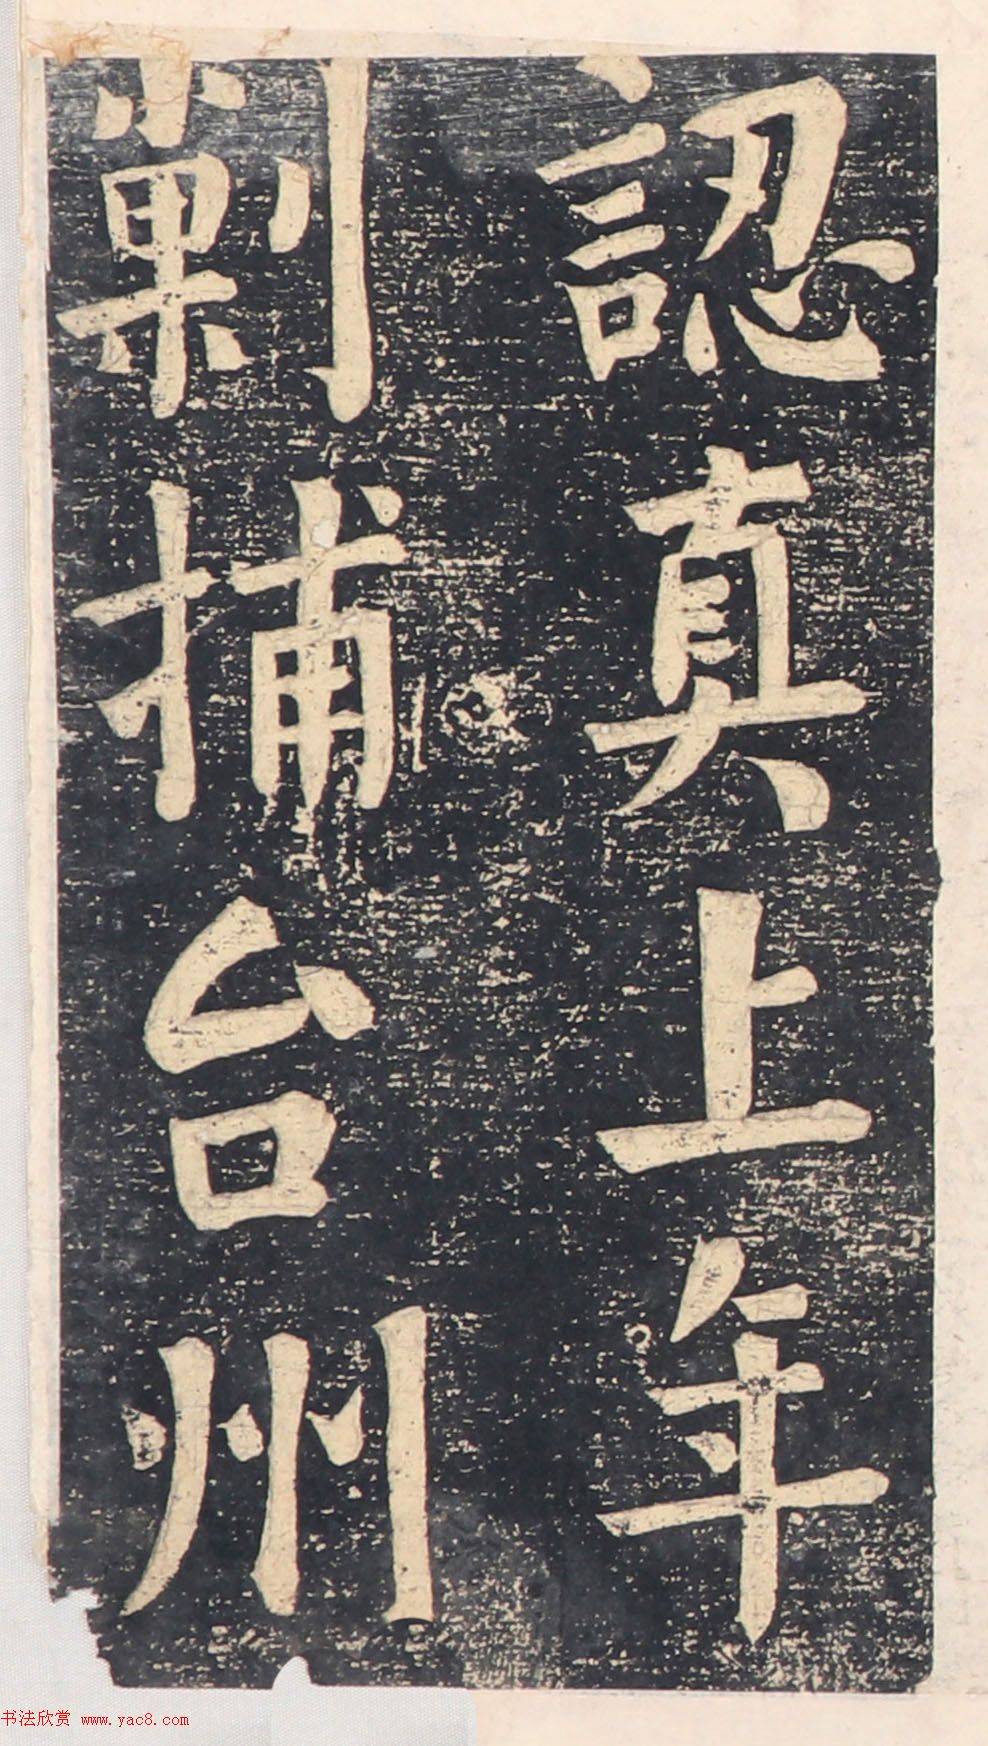 認真上年
剿捕台州
书法欣赏 www.yac8.com